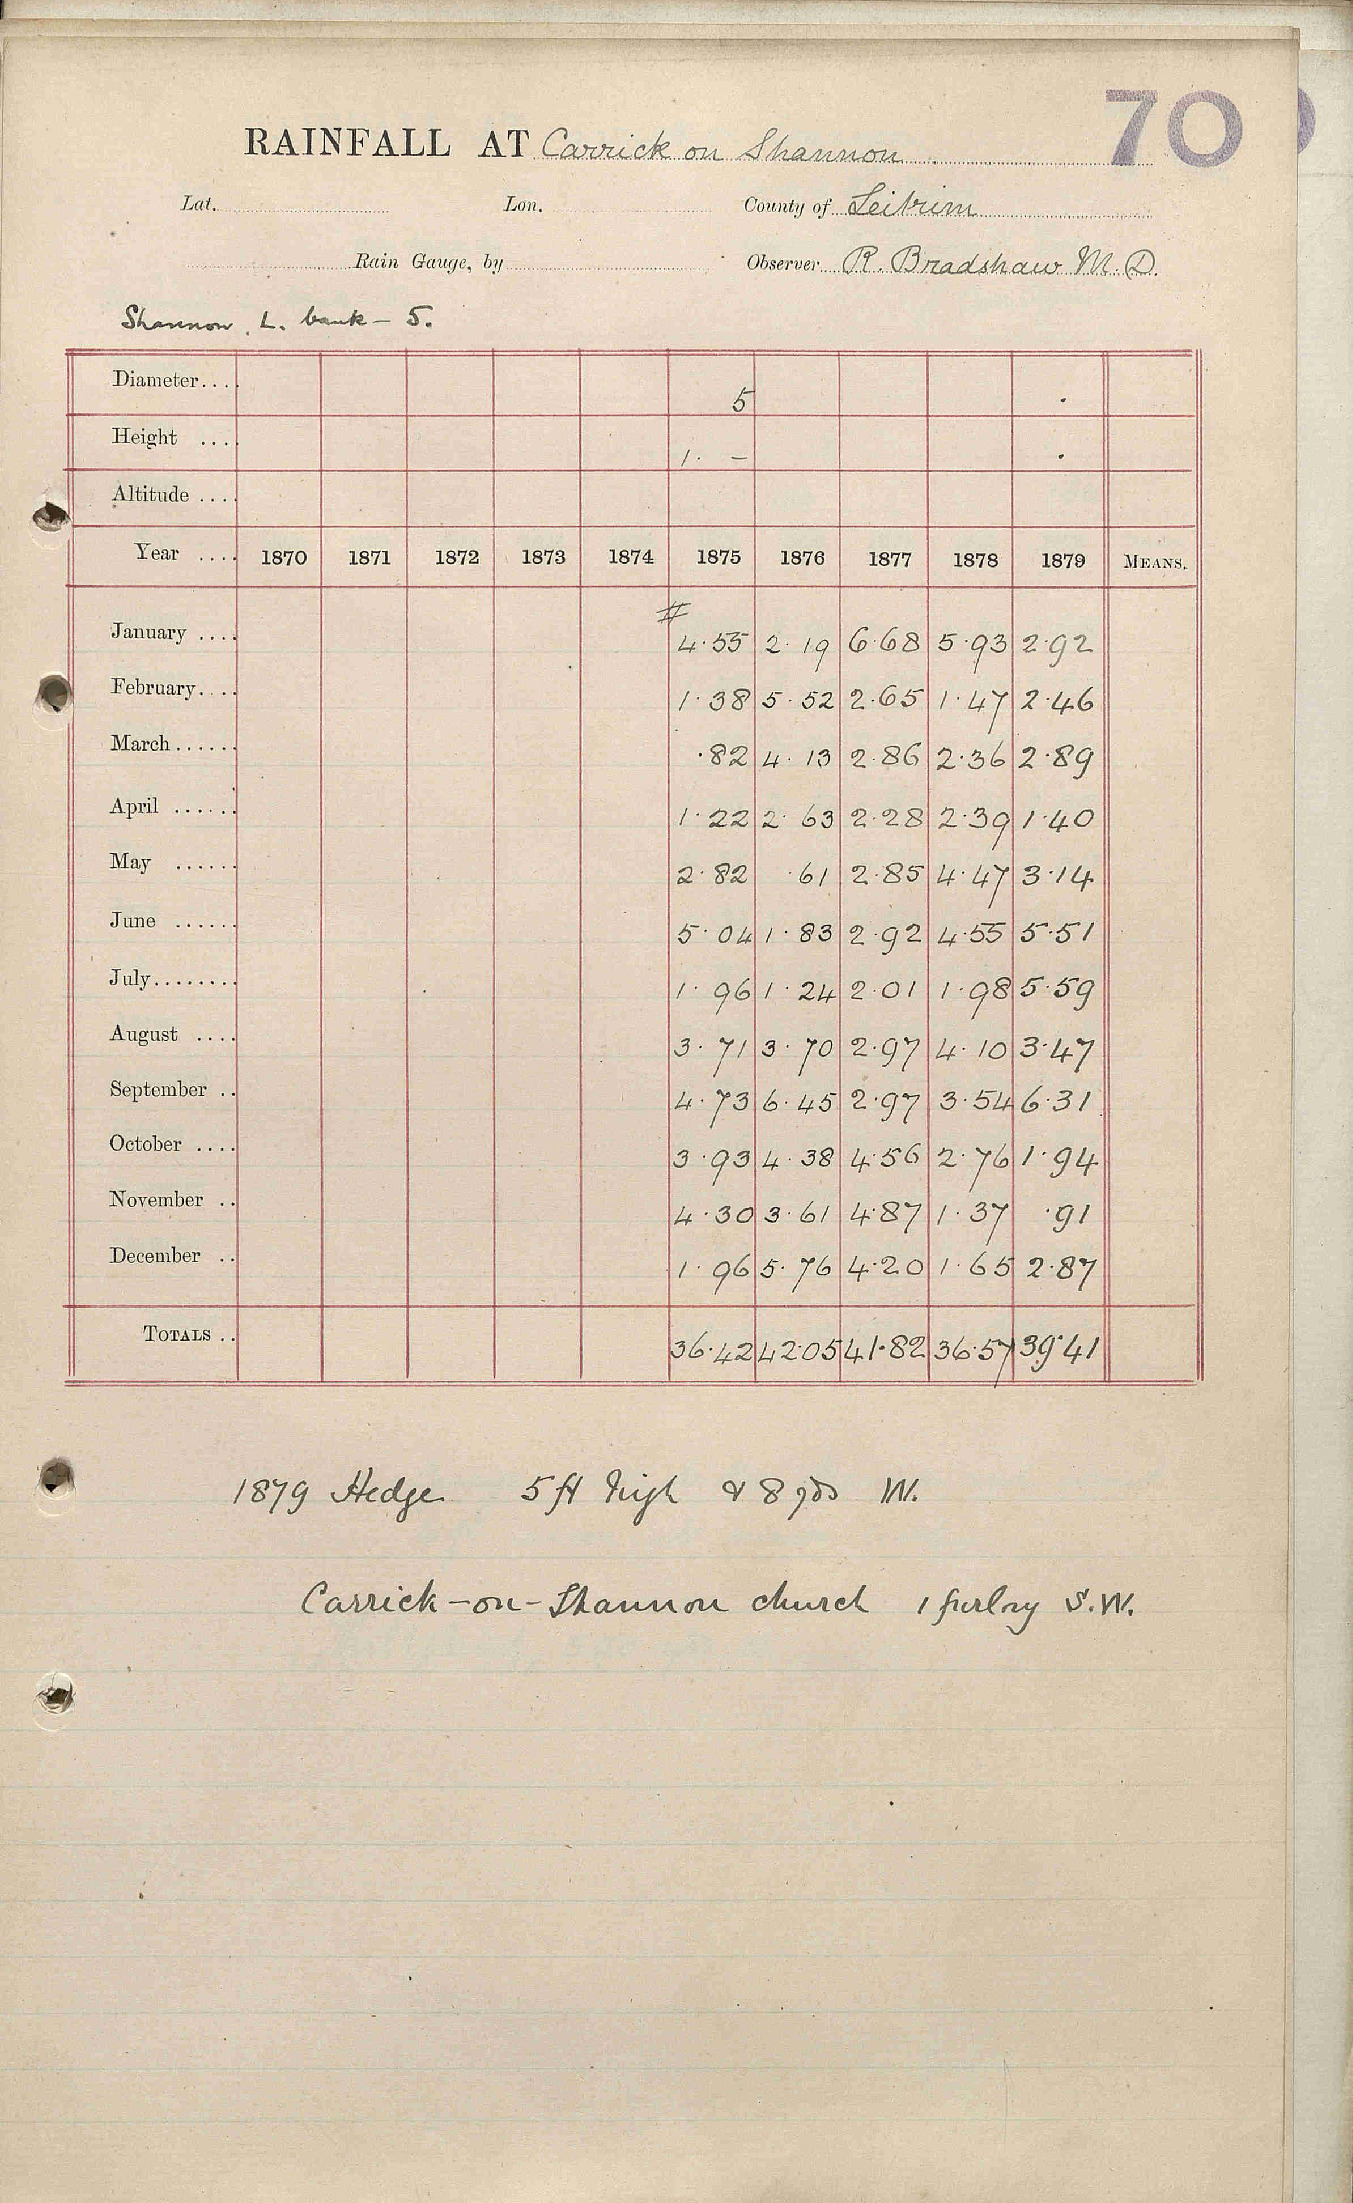 70
RAINFALL AT Carrick on Shannon
Lat. Lon. County of Leitrim
Rain Gauge, by Observer R. Bradshaw M.D.
Shannon, L. bank - 5.
Diameter.... 5
Height .... 1. -
Altitude ....
Year .... 1870 1871 1872 1873 1874 1875 1876 1877 1878 1879 MEANS.
#
January .... 4.55 2.19 6.68 5.93 2.92
February.... 1.38 5.52 2.65 1.47 2.46
March...... .82 4.13 2.86 2.36 2.89
April ...... 1.22 2.63 2.28 2.39 1.40
May ...... 2.82 .61 2.85 4.47 3.14
June ...... 5.04 1.83 2.92 4.55 5.51
July........ 1.96 1.24 2.01 1.98 5.59
August .... 3.71 3.70 2.97 4.10 3.47
September .. 4.73 6.45 2.97 3.54 6.31
October .... 3.93 4.38 4.56 2.76 1.94
November .. 4.30 3.61 4.87 1.37 .91
December .. 1.96 5.76 4.20 1.65 2.87
TOTALS .. 36.42 42.05 41.82 36.57 39.41
1879 Hedge 5 ft high & 8 yds W.
Carrick-on-Shannon church 1 furlong S.W.